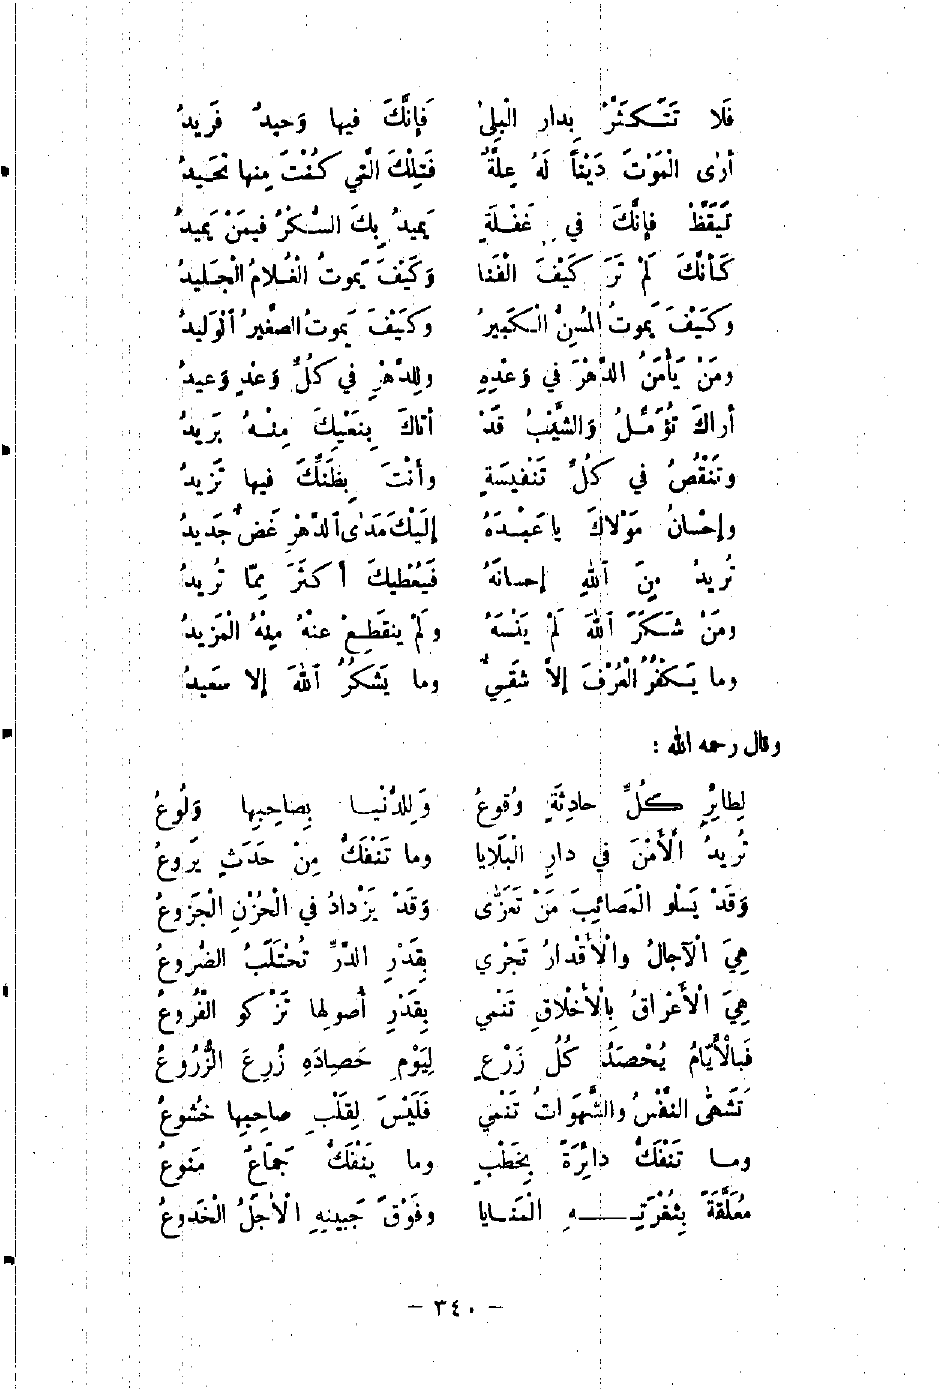 فَلا تَتَكَثَّرْ بِدارِ الْبِلىٰ فَإِنَّكَ فيها وَحيدٌ فَريدُ
أَرٰى الْمَوْتَ دَيْناً لَهُ عِلَّةٌ فَتِلْكَ الَّتي كُنْتَ مِنها تَحيدُ
تَيَقَّظْ فإِنَّكَ في غَفْلَةٍ يَميدُ بِكَ السُّكْرُ فيمَنْ يَميدُ
كَأَنَّكَ لَمْ تَرَ كَيْفَ الْفَنا وَكَيْفَ يَموتُ الْغُلامُ الْجَليدُ
وكَيْفَ يَموتُ الْمُسِنُّ الْكَبيرُ وكَيْفَ يَموتُ الصَّغيرُ ٱلْوَليدُ
ومَنْ يَأْمَنُ الدَّهْرَ في وَعْدِهِ وللِدَّهْرِ في كُلِّ وَعْدٍ وَعيدُ
أَراكَ تُؤَمِّلُ وَالشَّيْبُ قَدْ أَتاكَ بِنَعْيِكَ مِنْهُ بَريدُ
وتَنْقُصُ في كُلِّ تَنْفيسَةٍ وأَنْتَ بِظَنِّكَ فيها تَزيدُ
وإِحْسانُ مَوْلاكَ يا عَبْدَهُ إِلَيْكَ مَدَى ٱلدَّهْرِ غَضٌّ جَديدُ
تُريدُ مِنَ ٱللهِ إِحسانَهُ فَيُعْطيكَ أَكثَرَ مِمّا تُريدُ
ومَنْ شَكَرَ ٱللهَ لَمْ يَنْسَهُ ولَمْ يَنقَطِعْ عنْهُ مِنْهُ الْمَزيدُ
وما يَكْفُرُ الْعُرْفَ إِلاَّ شَقِيٌّ وما يَشكُرُ ٱللهَ إِلا سَعيدُ
وقال رحمه الله :
لِطائِرِ كُلِّ حادِثَةٍ وُقوعُ وَلِلدُّنْيا بِصاحِبِها وَلُوعُ
تُريدُ الْأَمْنَ في دارِ الْبَلايا وما تَنْفَكُّ مِنْ حَدَثٍ يَروعُ
وَقَدْ يَسْلو الْمَصائِبَ مَنْ تَعَزّٰى وَقَدْ يَزْدادُ في الْحُزْنِ الْجَزوعُ
هِيَ الْآجالُ والْأَقْدارُ تَجْري بِقَدْرِ الدَّرِّ تُحْتَلَبُ الضُّروعُ
هِيَ الْأَعْراقُ بِالْأَخْلاقِ تَنْمي بِقَدْرِ أُصولِها تَزْكو الْفُروعُ
فَبالْأَيّامُ يُحْصَدُ كُلُ زَرْعٍ لِيَوْمِ حَصِادَهِ زُرِعَ الزُّرُوعُ
تَشَهّى النَّفْسُ والشَّهَواتُ تَنْمي فَلَيْسَ لِقَلْبِ صاحِبِها خُشوعُ
وما تَنْفَكُّ دائِرَةٌ بِخَطْبٍ وما يَنْفَكُّ جَمّاعٌ مَنوعُ
مُعَلَّقَةٌ بِثُغْرَتِهِ الْمَنايا وفَوْقَ جَبينِهِ الْأَجَلُ الْخَدوعُ
– ٣٤٠ –